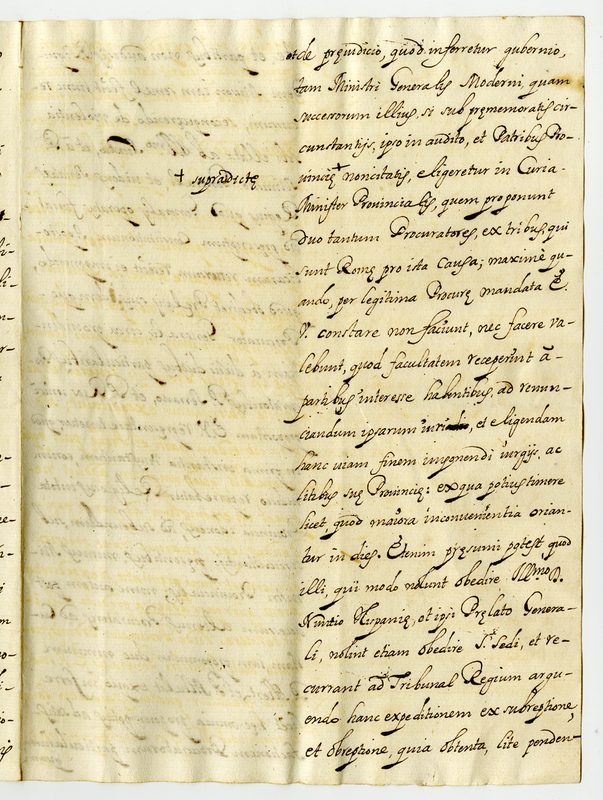 et de pręiudicio, quod inferretur gubernio,
tam Ministri Generalis Moderni, quam
succesorum illius, si sub pręmemoratis cir-
cunstantijs, ipso in audito, et Patribus Pro-
uincię + noncitatis, eligeretur in Curia
+ supradictę
Minister Prouincialis, quem proponunt
duo tantum Procuratores, ex tribus, qui
sunt Romę pro ista Causa; maximè qu-
ando, per legitima Procurę mandata E.
V. constare non faciunt, nec facere va-
lebunt, quod facultatem receperint à
partibus interesse habentibus, ad renun-
ciandum ipsarum iuri, et eligendam
hanc uiam finem imponendi iurgijs, ac
litibus suę Prouincię: ex qua potius timere
licet, quod maiora inconuenientia orian-
tur in dies. Etenim pręsumi potest, quod
illi, qui modo nolunt obedire Ill.mo D.
Nuntio Hispanię, et ipsi Pręlato Genera-
li, nolint etiam obedire S.ę Sedi, et re-
currant ad Tribunal Regium argu-
endo hanc expeditionem ex subreptione,
et obreptione, quia obtenta, lite penden-